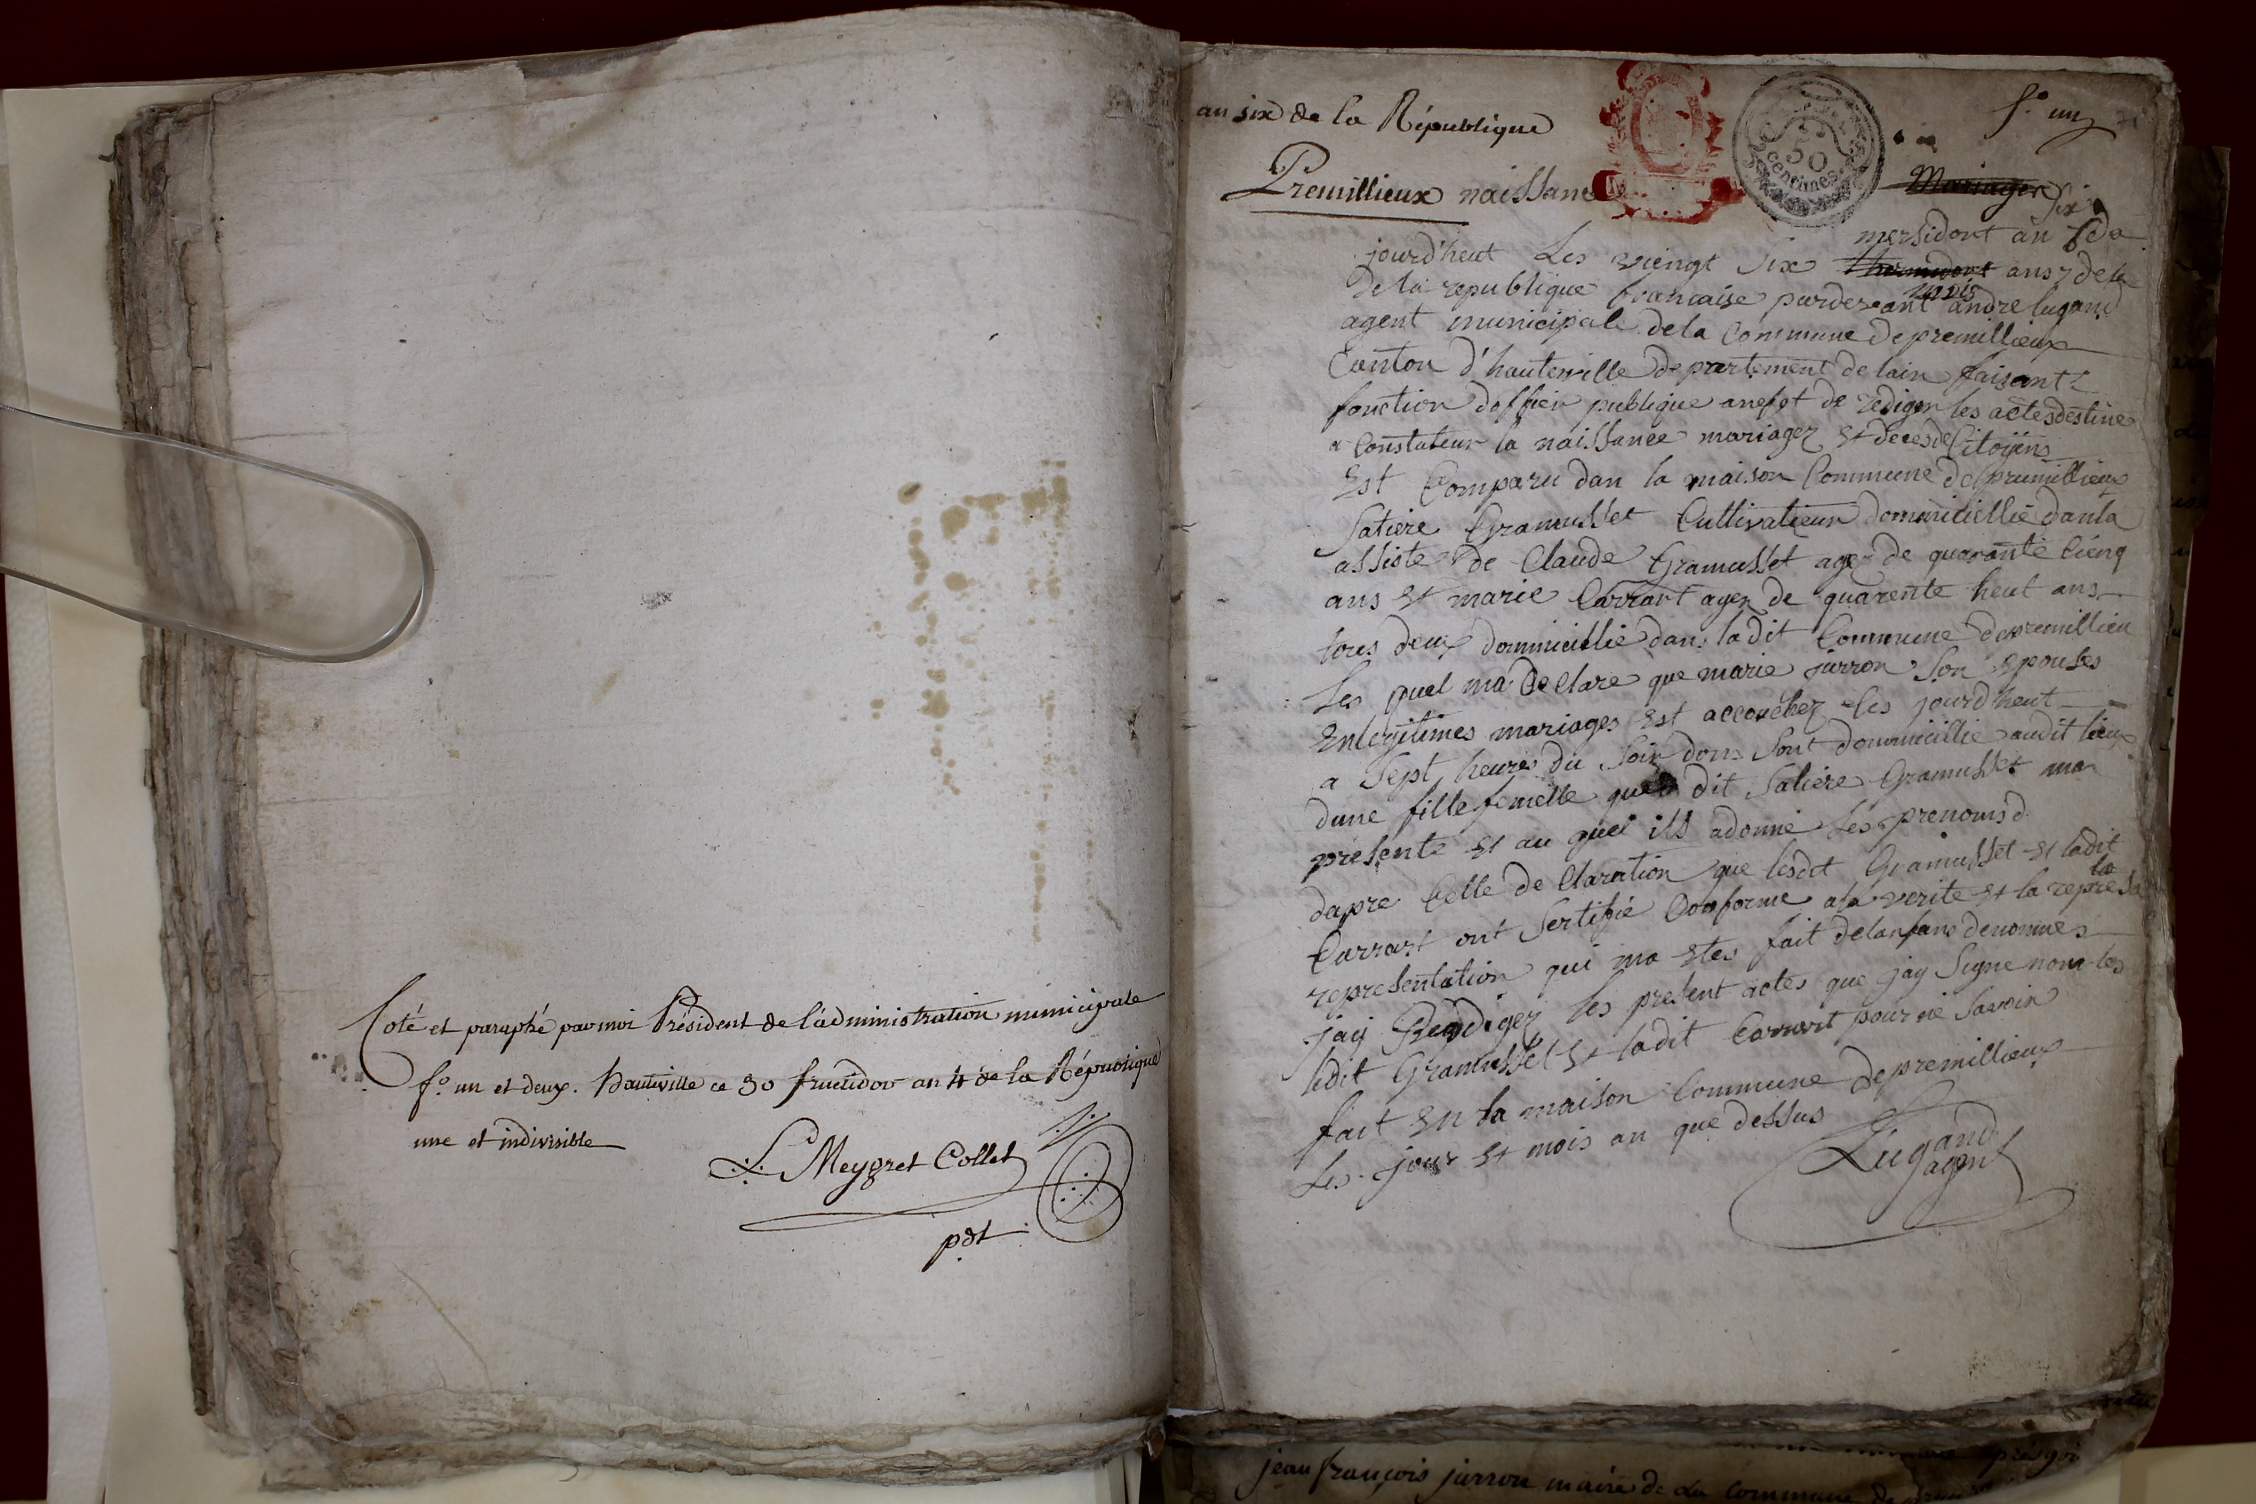 Coté et paraphé par moi Président de l'administration municipale
f.o un et deux. hauteville ce 30 fructidor an 4 de la République
une et indivisible
L Meygret Collet
pdt
an six de la République
f.o un
Premillieux naissance
50
centimes
Mariages
six
mersidort an de
jourd'heut Les viengt six thermidort ans 7 de la
de la republique francaise pardevant andre lugand
agent municipale de la Commune de premillieux
Canton d'hauteville departement de lain faisant
fonction doffier publique anefet de rediger les actes destine
a Constateur la naissance mariagez et deces de Citoÿens
Est Comparu dan la maison Commune de premillieux
Satiere Gramusset Cultivatieur domiciellié dan la
assiste de Claude Gramusset agez de quarante Cienq
ans Et marie Carrart agez de quarente heut ans
tous deux dommicillié dans la dit Commune de premillieu
Les quel ma declare que marie jurron Son epouses
En legitimes mariages Est accouchez les jourd'heut
a Sept heures du Soir dans Sont dommicillié audit lieux
dune fille femelle que dit Satiere Gramusset ma
presente Et au quel ill adonné Les prenoms d
dapre Celle de Claration que lesdit Gramusset Et ladit
Carrart ont Sertifié Conforme a la verite Et la
representation qui ma Etes fait delanfans denommes
jaij Redigez les present actes que jaÿ Signe non les
ledit Gramusset Et ladit Carrart pour ne Savoir
fait En la maison Commune de premillieux
Les jour Et mois an que dessus
Lugand
agent
jean françois jurron maire de la commune de